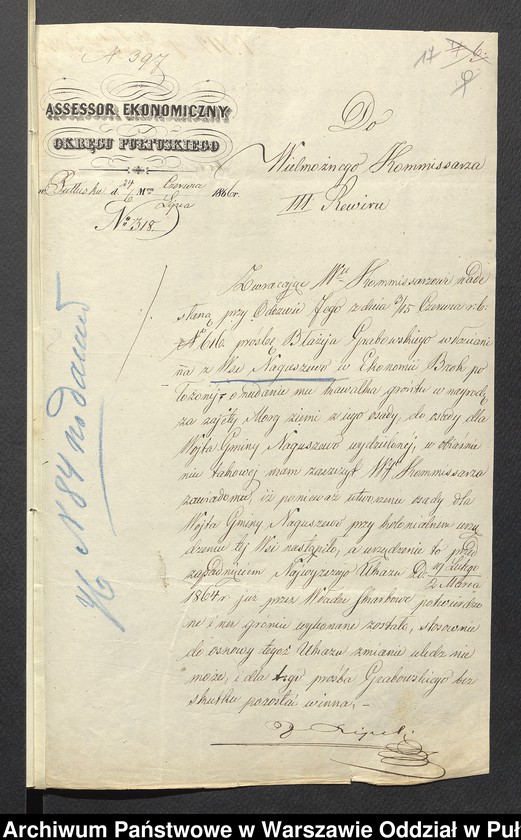 N 397
17 6.
ASSESSOR EKONOMICZNY
OKRĘGU PUŁTUSKIEGO
w Pułtusku d. 24/6 Mca Czerwca/Lipca 1866 r.
No 318.
Do
Wielmożnego Kommissarza
III Rewiru
Zwracając Wmu Kommissarzowi nade
słaną przy Odezwie Jego z dnia 3/15 Czerwca r. b.
No 616 prośbę Błażeja Grabowskiego włościani
na z Wsi Naguszewo w Ekonomii Brok po
łożonej o nadanie mu kawałka gruntu w nagrodę
za zajętą Morg ziemi z jego osady, do osady dla
Wójta Gminy Naguszewo wydzielonej, w objaśnie
niu takowej mam zaszczyt Wgo Kommissarza
zawiadomić, iż ponieważ utworzenie osady dla
Wójta Gminy Naguszewo przy kolonialnem urzą
dzeniu tej Wsi nastąpiło, a urządzenie to przed
Najwyższego Ukazu D. 19 Lutego/2 Marca
1864 r już przez Władze Skarbowe potwierdzo
ne i na gruncie wykonane zostało, stosownie
do osnowy tegoż Ukazu zmianie uledz nie
może, i dla tego prośba Grabowskiego bez
skutku pozostać winna. –
N 84 podaniu
Archiwum Państwowe w Warszawie Oddział w Puł